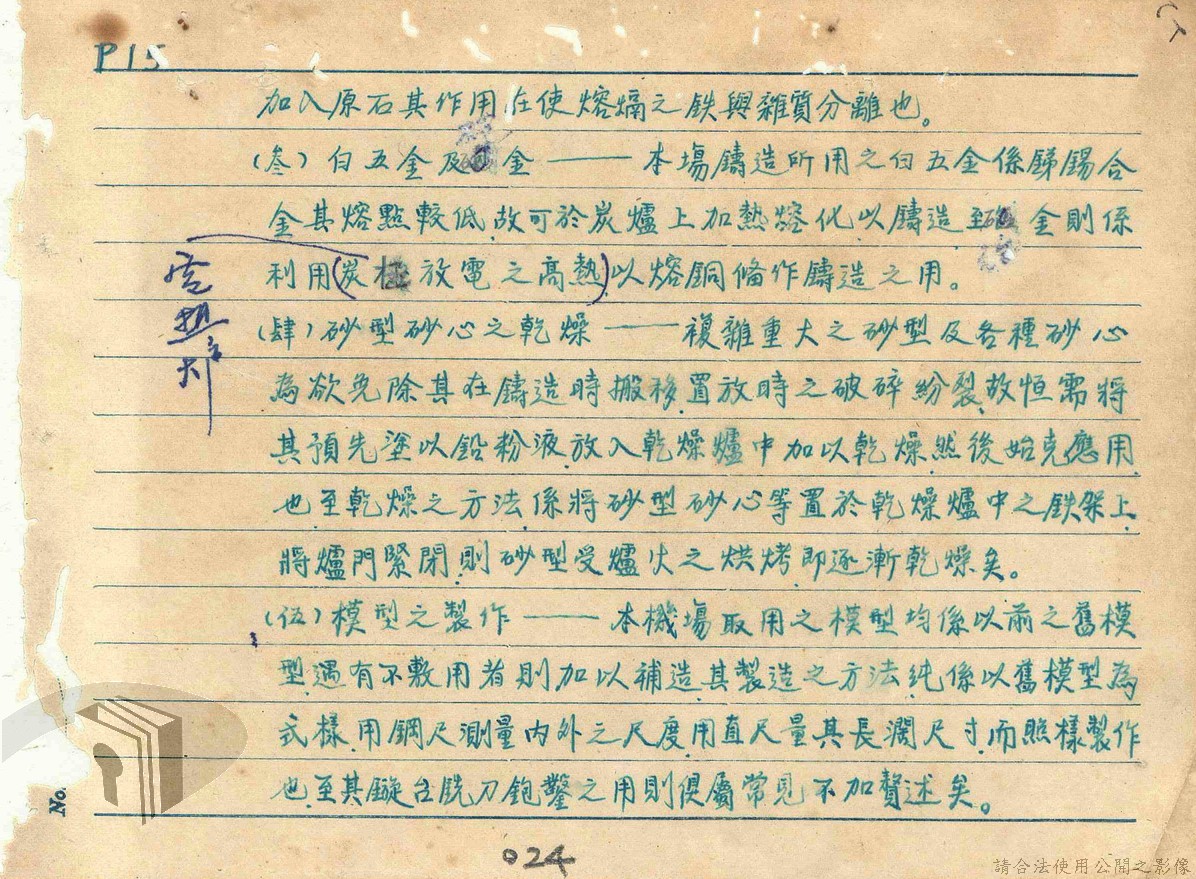 P15
加入原石其作用在使熔融之鉄與雜質分離也。
(叁)白五金及 金——本塲鑄造所用之白五金係銻錫合
金其熔點較低,故可於炭爐上加熱熔化,以鑄造,至 金則係
利用(炭極放電之高熱)以熔銅條作鑄造之用。
(肆)砂型砂心之乾燥——複雜重大之砂型及各種砂心
為欲免除其在鑄造時搬移,置放時之破碎紛裂,故恒需將
其預先塗以鉛粉液,放入乾燥爐中加以乾燥,然後始克應用
也,至乾燥之方法,係將砂型砂心等置於乾燥爐中之鉄架上,
將爐門緊閉,則砂型受爐火之烘烤,即逐漸乾燥矣。
(伍)模型之製作——本機塲取用之模型均係以前之舊模
型,遇有不敷用者則加以補造,其製造之方法,純係以舊模型為
式樣,用鋼尺測量內外之尺度,用直尺量其長濶尺寸,而照樣製作
也,至其鏇台銑刀鉋鑿之用則俱屬常見,不加贅述矣。
No.
024
請合法使用公開之影像